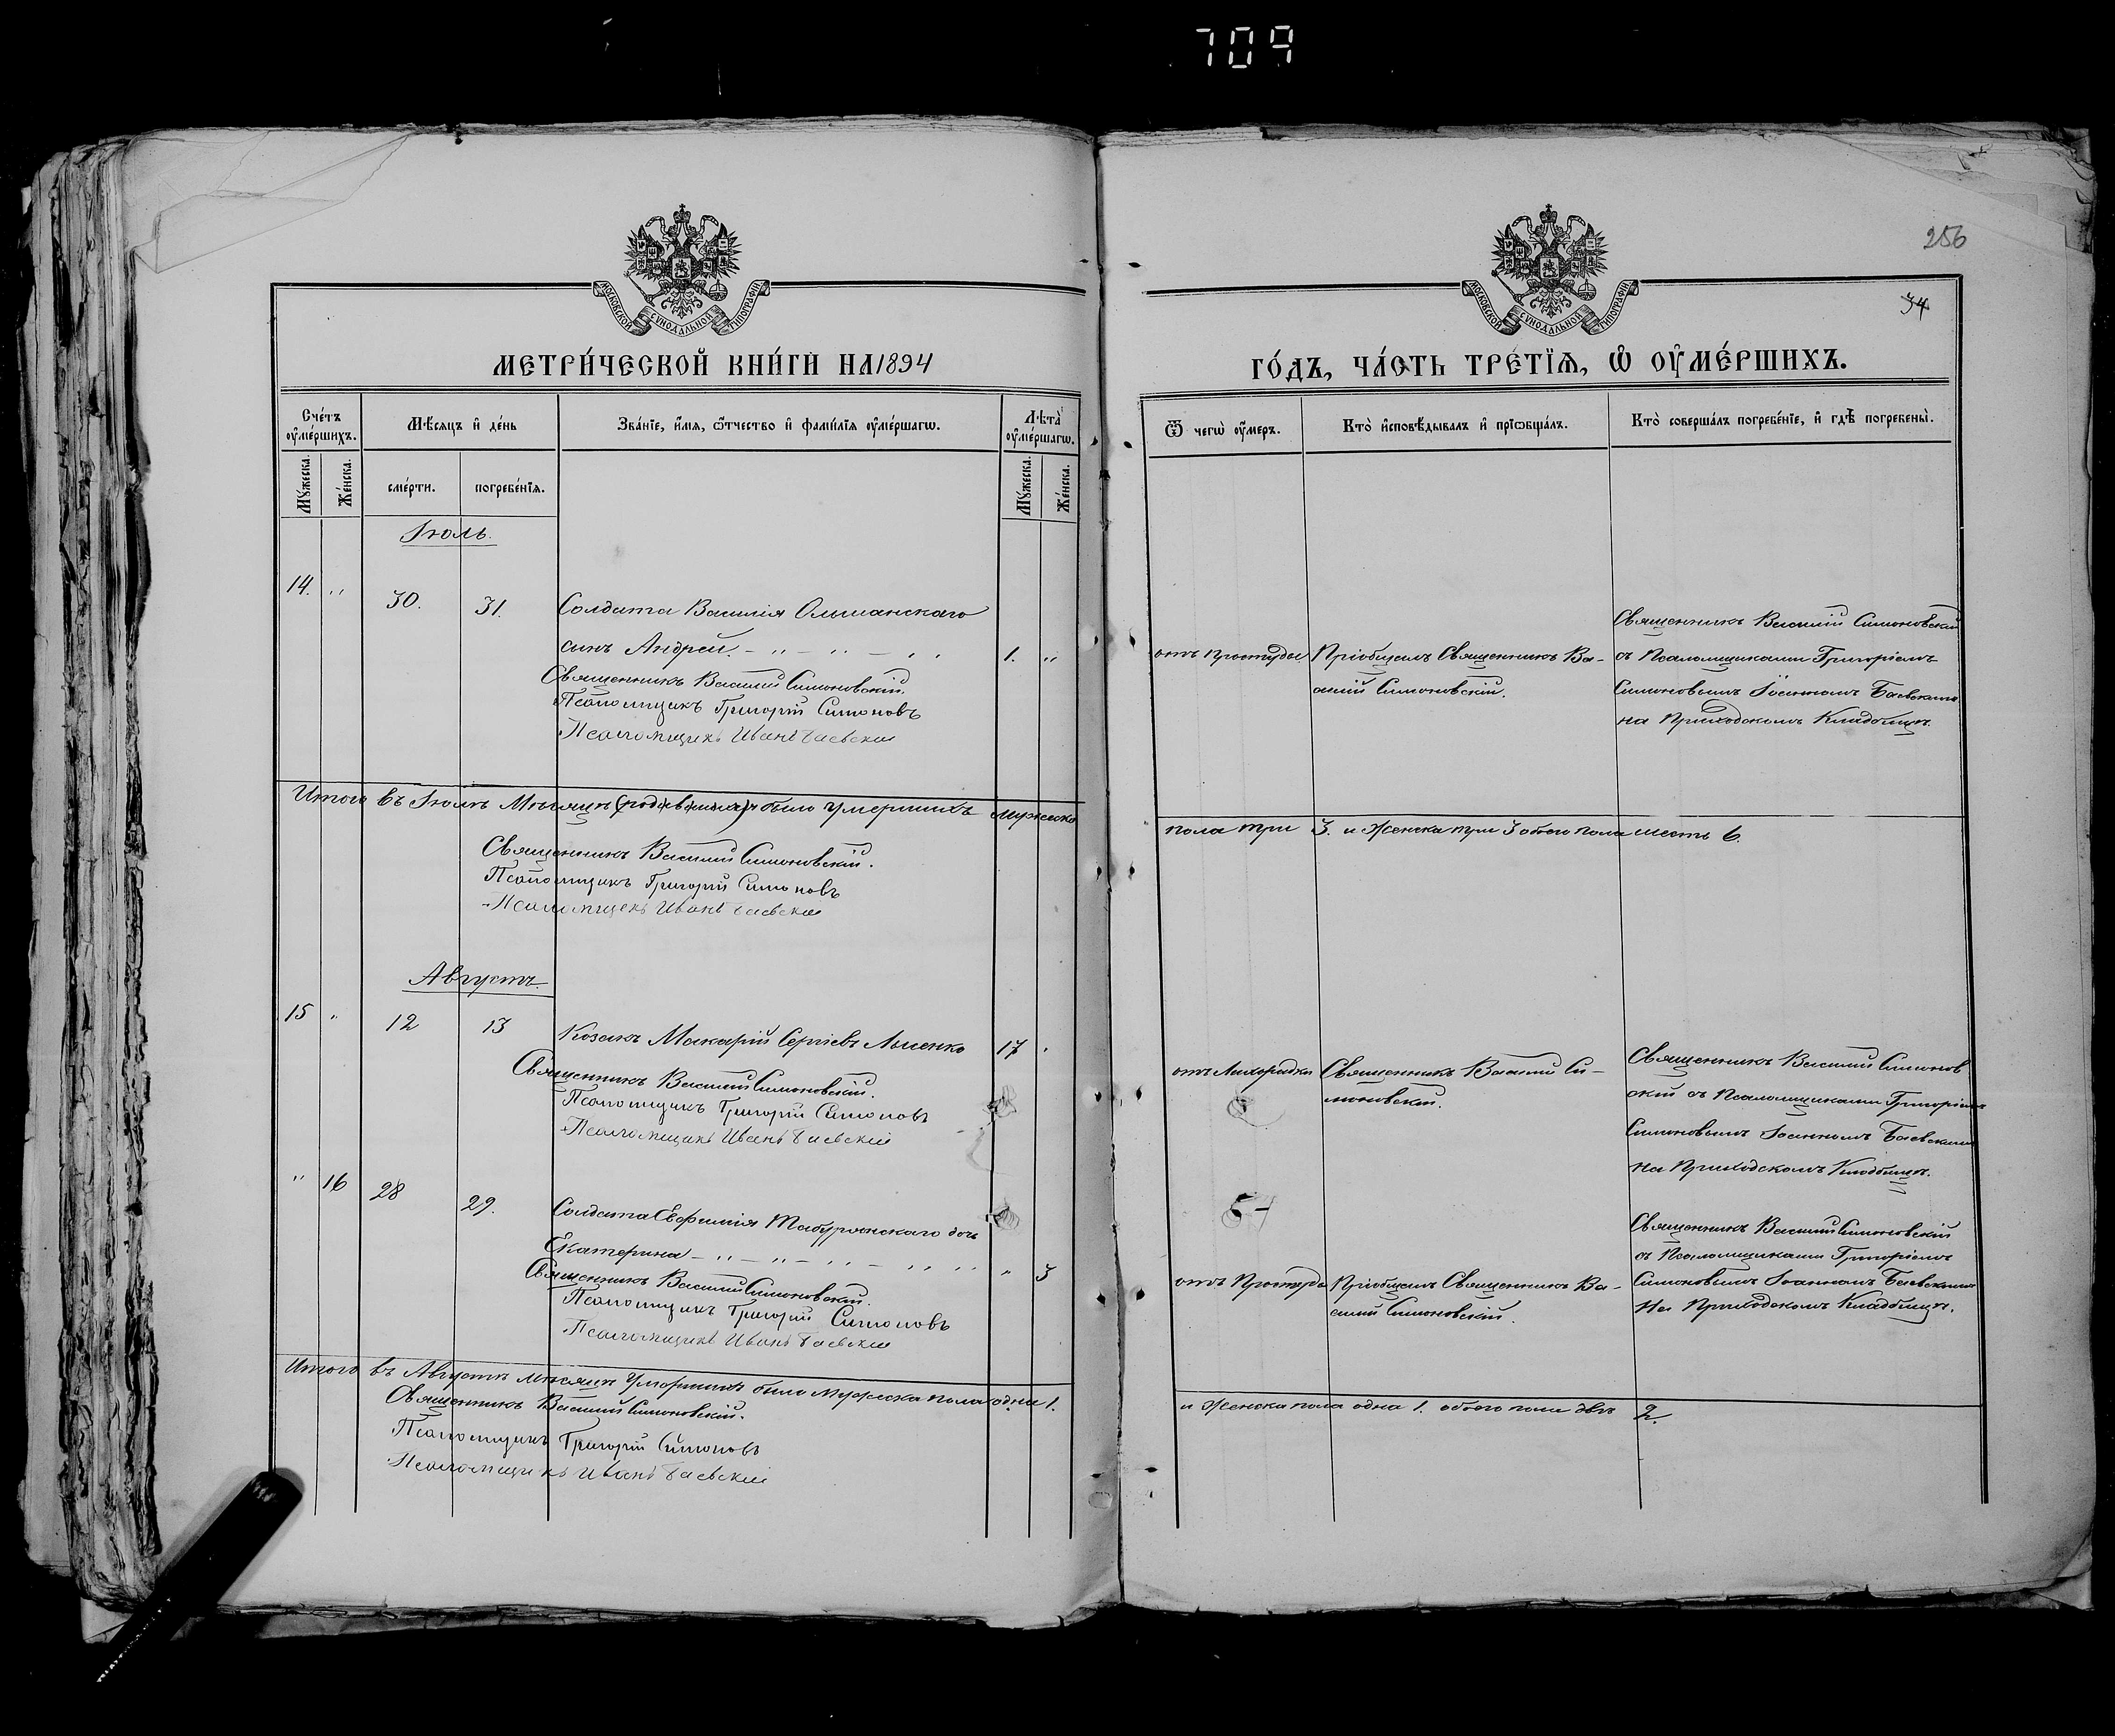 709
256
34
МОСКОВСКОЙ СѴНОДАЛЬНОЙ ТИПОГРАФІИ
МОСКОВСКОЙ СѴНОДАЛЬНОЙ ТИПОГРАФІИ
МЕТРИ́ЧЕСКОЙ КНИ́ГИ НА 1894
ГО́ДЪ, ЧА́СТЬ ТРЕ́ТІѦ, Ѡ ОУМЕ́РШИХЪ.
Сче́тъ оумершихъ.
Мѣсяцъ и де́нь
Зва́ніе, имя, отчество и фами́лія оуме́ршагѡ.
Лѣта̀ оуме́ршагѡ.
Ѿ чегѡ̀ оумеръ.
Кто̀ исповѣдывалъ и пріѡбща́лъ.
Кто̀ соверша́лъ погребе́ніе, и гдѣ погребены̀.
Му́жеска.
Же́нска.
сме́рти.
погребе́нія.
Му́жеска.
Же́нска.
Іюль.
14. " 30. 31. Солдата Василія Ольшанскаго
сынъ Андрей. - " - " - " 1. "
Священникъ Василій Симоновскій.
Псаломщикъ Григорій Симоновъ
Псаломщикъ Иванъ Баевскій
отъ простуды
Пріобщалъ Священникъ Ва-
силій Симоновскій.
Священникъ Василій Симоновскій
съ Псаломщиками Григоріемъ
Симоновымъ Іоанномъ Баевскимъ
на Приходскомъ Кладбищѣ.
Итого въ Іюлѣ Мѣсяцѣ было умершихъ мужеска
пола три 3. и Женска три 3 обоего пола шесть 6.
Священникъ Василій Симоновскій.
Псаломщикъ Григорій Симоновъ
Псаломщикъ Иванъ Баевскій
Августъ.
15 " 12 13 Козакъ Макарій Сергіевъ Лысенко 17 "
Священникъ Василій Симоновскій.
Псаломщикъ Григорій Симоновъ
Псаломщикъ Иванъ Баевскій
отъ Лихорадки
Священникъ Василій Си-
моновскій.
Священникъ Василій Симонов
скій съ Псаломщиками Григоріемъ
Симоновымъ Іоанномъ Баевскимъ
на Приходскомъ Кладбищѣ.
" 16 28 29. Солдата Евфимія Табурянскаго дочь
Екатерина - " - " - " - " " 3
Священникъ Василій Симоновскій.
Псаломщикъ Григорій Симоновъ
Псаломщикъ Иванъ Баевскій
отъ Простуды
Пріобщалъ Священникъ Ва-
силій Симоновскій.
Священникъ Василій Симоновскій
съ Псаломщиками Григоріемъ
Симоновымъ Іоанномъ Баевскимъ
На Приходскомъ Кладбищѣ.
Итого въ Августѣ мѣсяцѣ Умершихъ было мужеска пола одна 1.
и Женска пола одна 1. обоего пола двѣ 2.
Священникъ Василій Симоновскій.
Псаломщикъ Григорій Симоновъ
Псаломщикъ Иванъ Баевскій